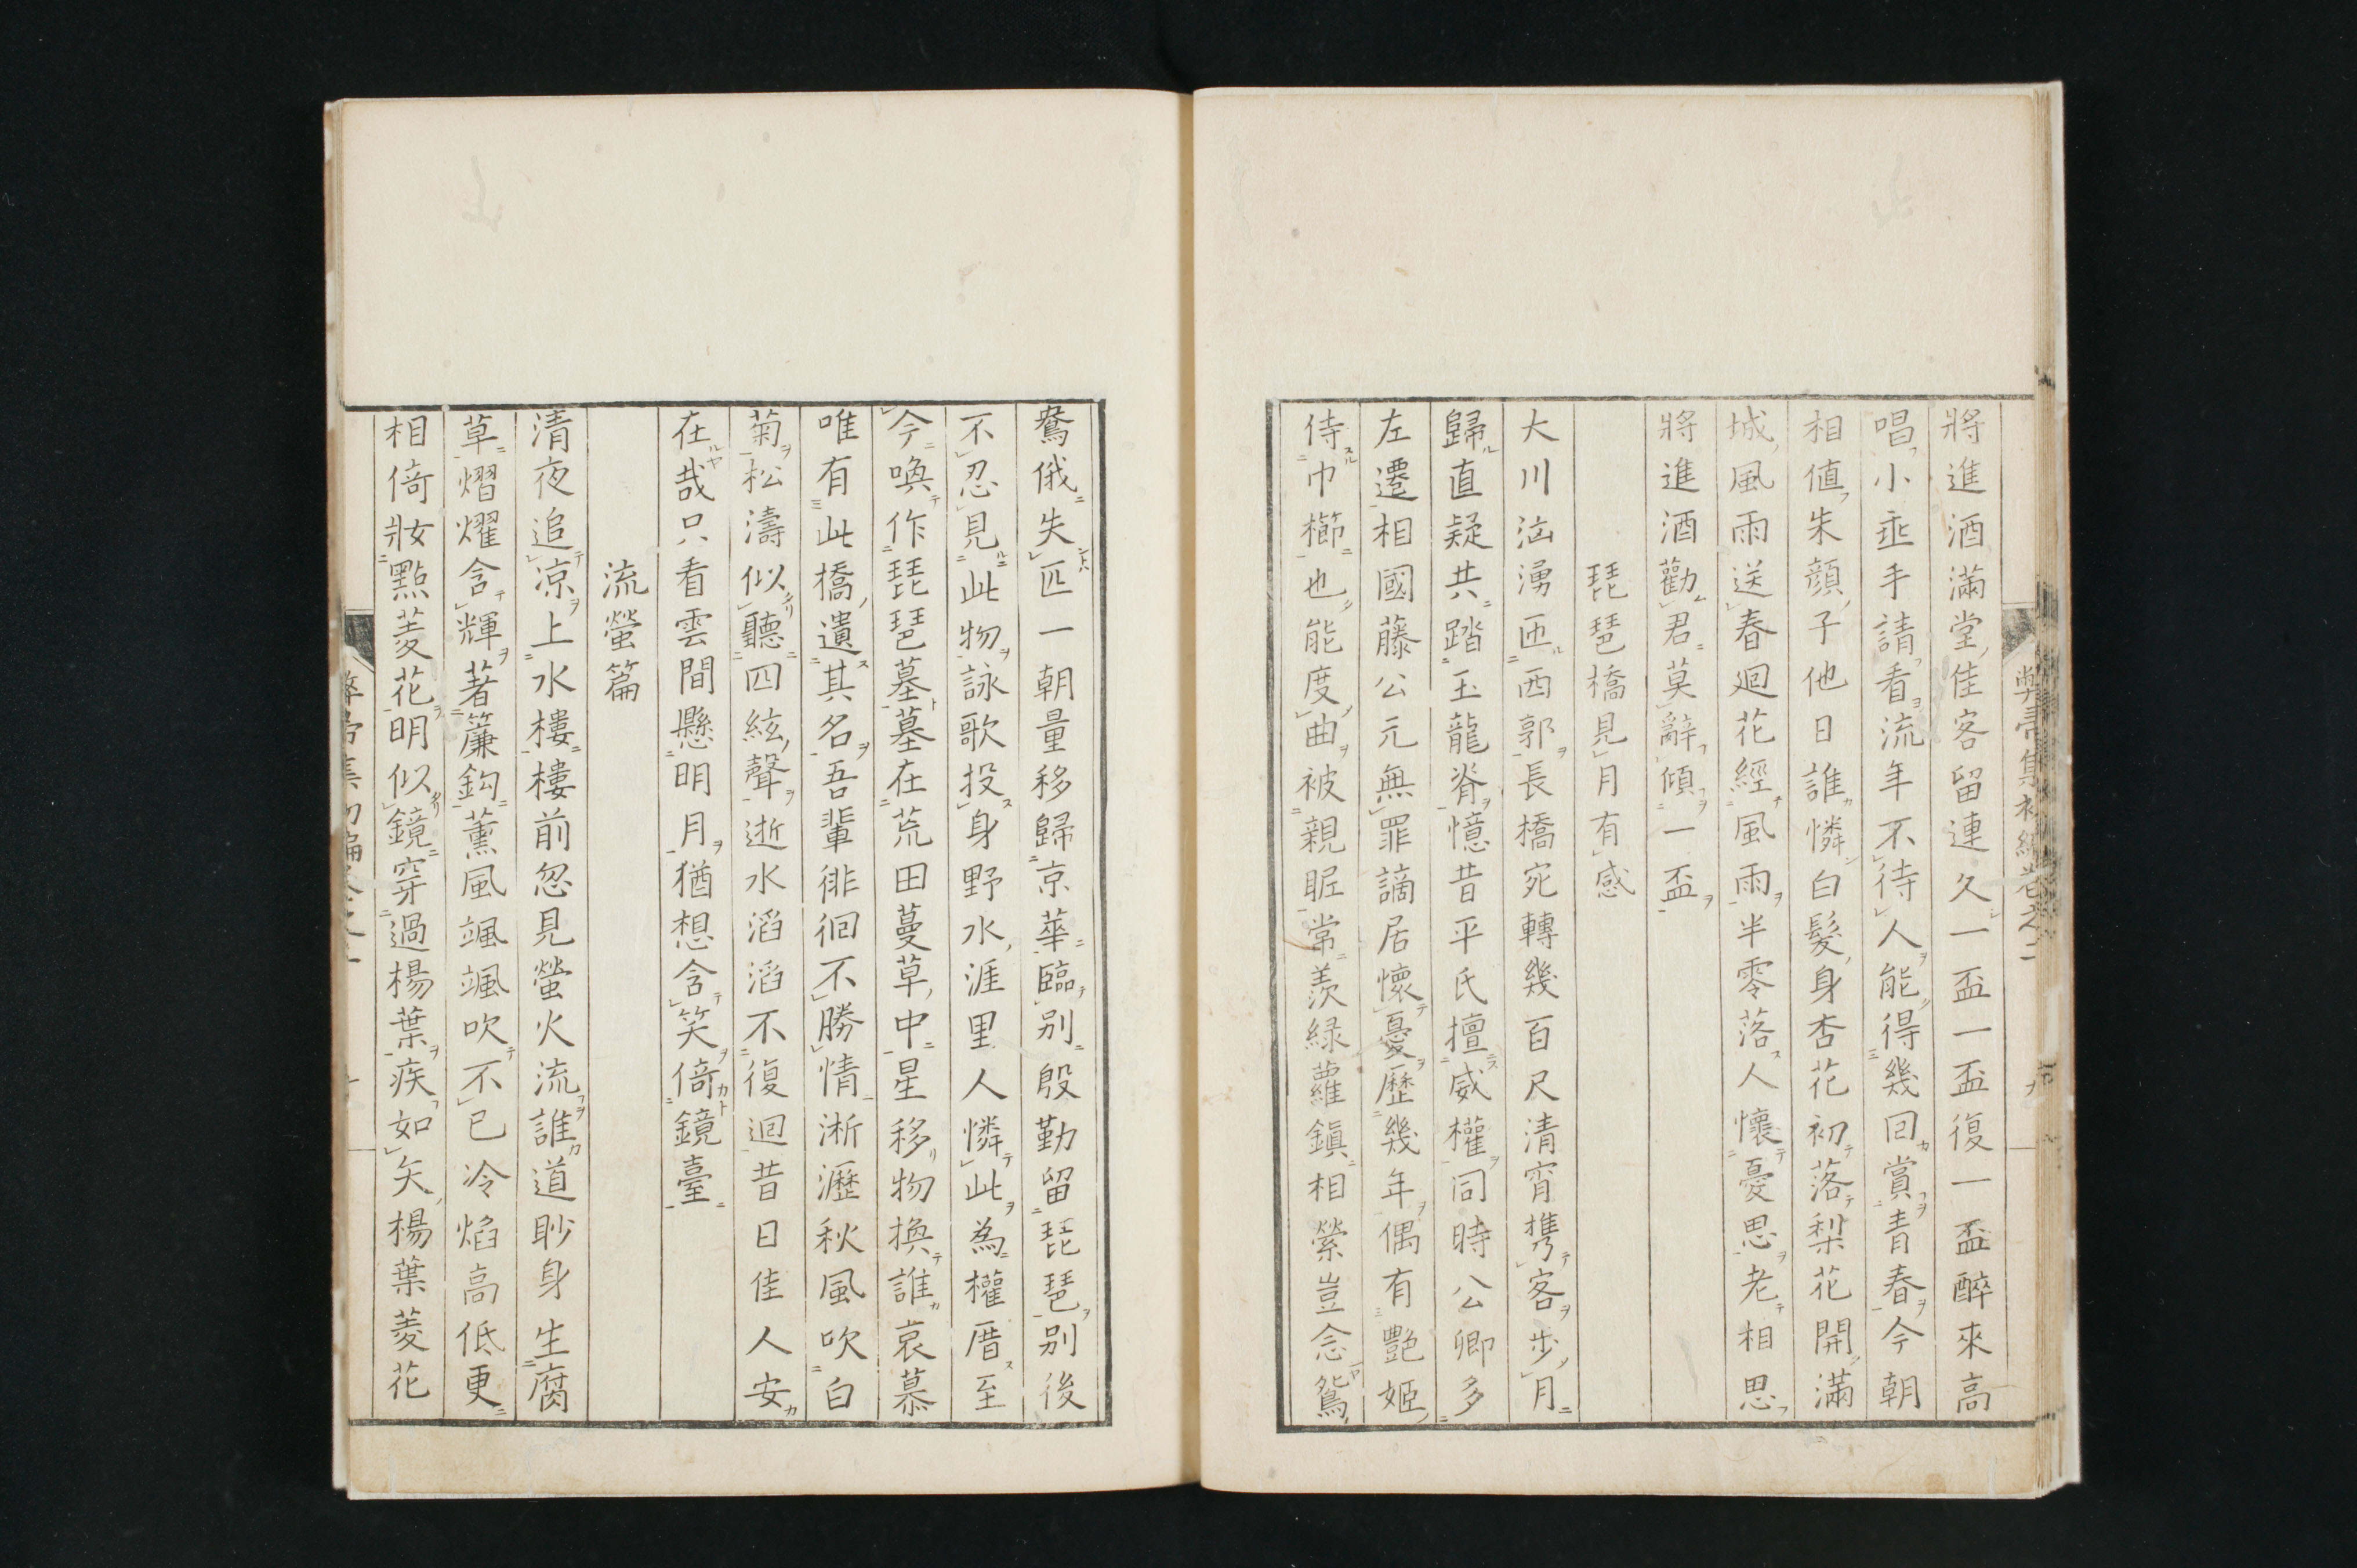 將進酒滿堂佳客留連久一盃一盃復一盃醉來高
唱小垂手請看流年不待人能得幾回賞青春今朝
相値朱顔子他日誰憐白髮身杏花初落梨花開滿
城風雨送春廻花經風雨半零落人懷憂思老相思
將進酒勸君莫辭傾一盃
琵琶橋見月有感
大川洶湧匝西郭長橋宛轉幾百尺清宵携客步月
歸直疑共踏玉龍脊憶昔平氏擅威權同時公卿多
左遷相國藤公元無罪謫居懷憂歷幾年偶有艷姬
侍巾櫛也能度曲被親昵常羨緑蘿鎭相縈豈念鴛
鴦俄失匹一朝量移歸京華臨別殷勤留琵琶別後
不忍見此物詠歌投身野水涯里人憐此為權厝至
今喚作琵琶墓墓在荒田蔓草中星移物換誰哀慕
唯有此橋遺其名吾輩徘徊不勝情淅瀝秋風吹白
菊松濤似聽四絃聲逝水滔滔不復廻昔日佳人安
在哉只看雲間懸明月猶想含笑倚鏡臺
流螢篇
清夜追凉上水樓樓前忽見螢火流誰道眇身生腐
草熠燿含輝著簾鈎薰風颯颯吹不已冷焰高低更
相倚妝點菱花明似鏡穿過楊葉疾如矢楊葉菱花